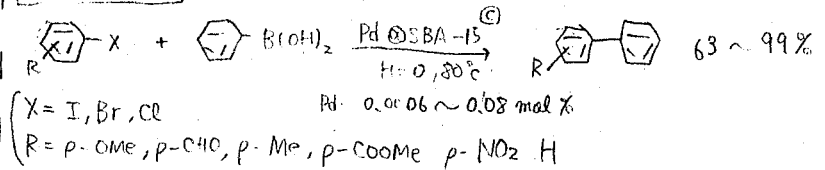 R X + B(OH)₂ Pd@SBA-15 Ⓒ R 63 ~ 99 %
H₂O, 80°C
X = I, Br, Cl Pd. 0.0006 ~ 0.08 mol %
R = p-OMe, p-CHO, p-Me, p-COOMe p-NO₂ H